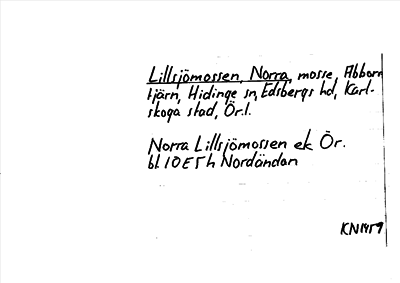 Lillsjömossen, Norra, mosse, Abborr
tjärn, Hidinge sn, Edsbergs hd, Karl-
skoga stad, Ör.l.
Norra Lillsjömossen ek Ör.
bl 10E5h Nordändan
KN1959